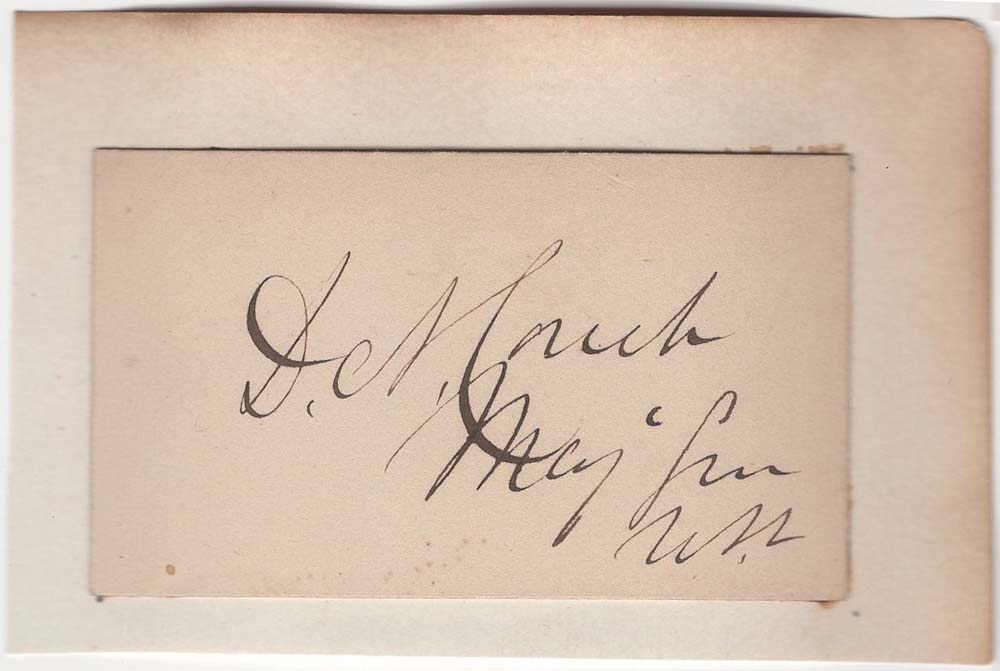 D. N. Couch
Maj Gen